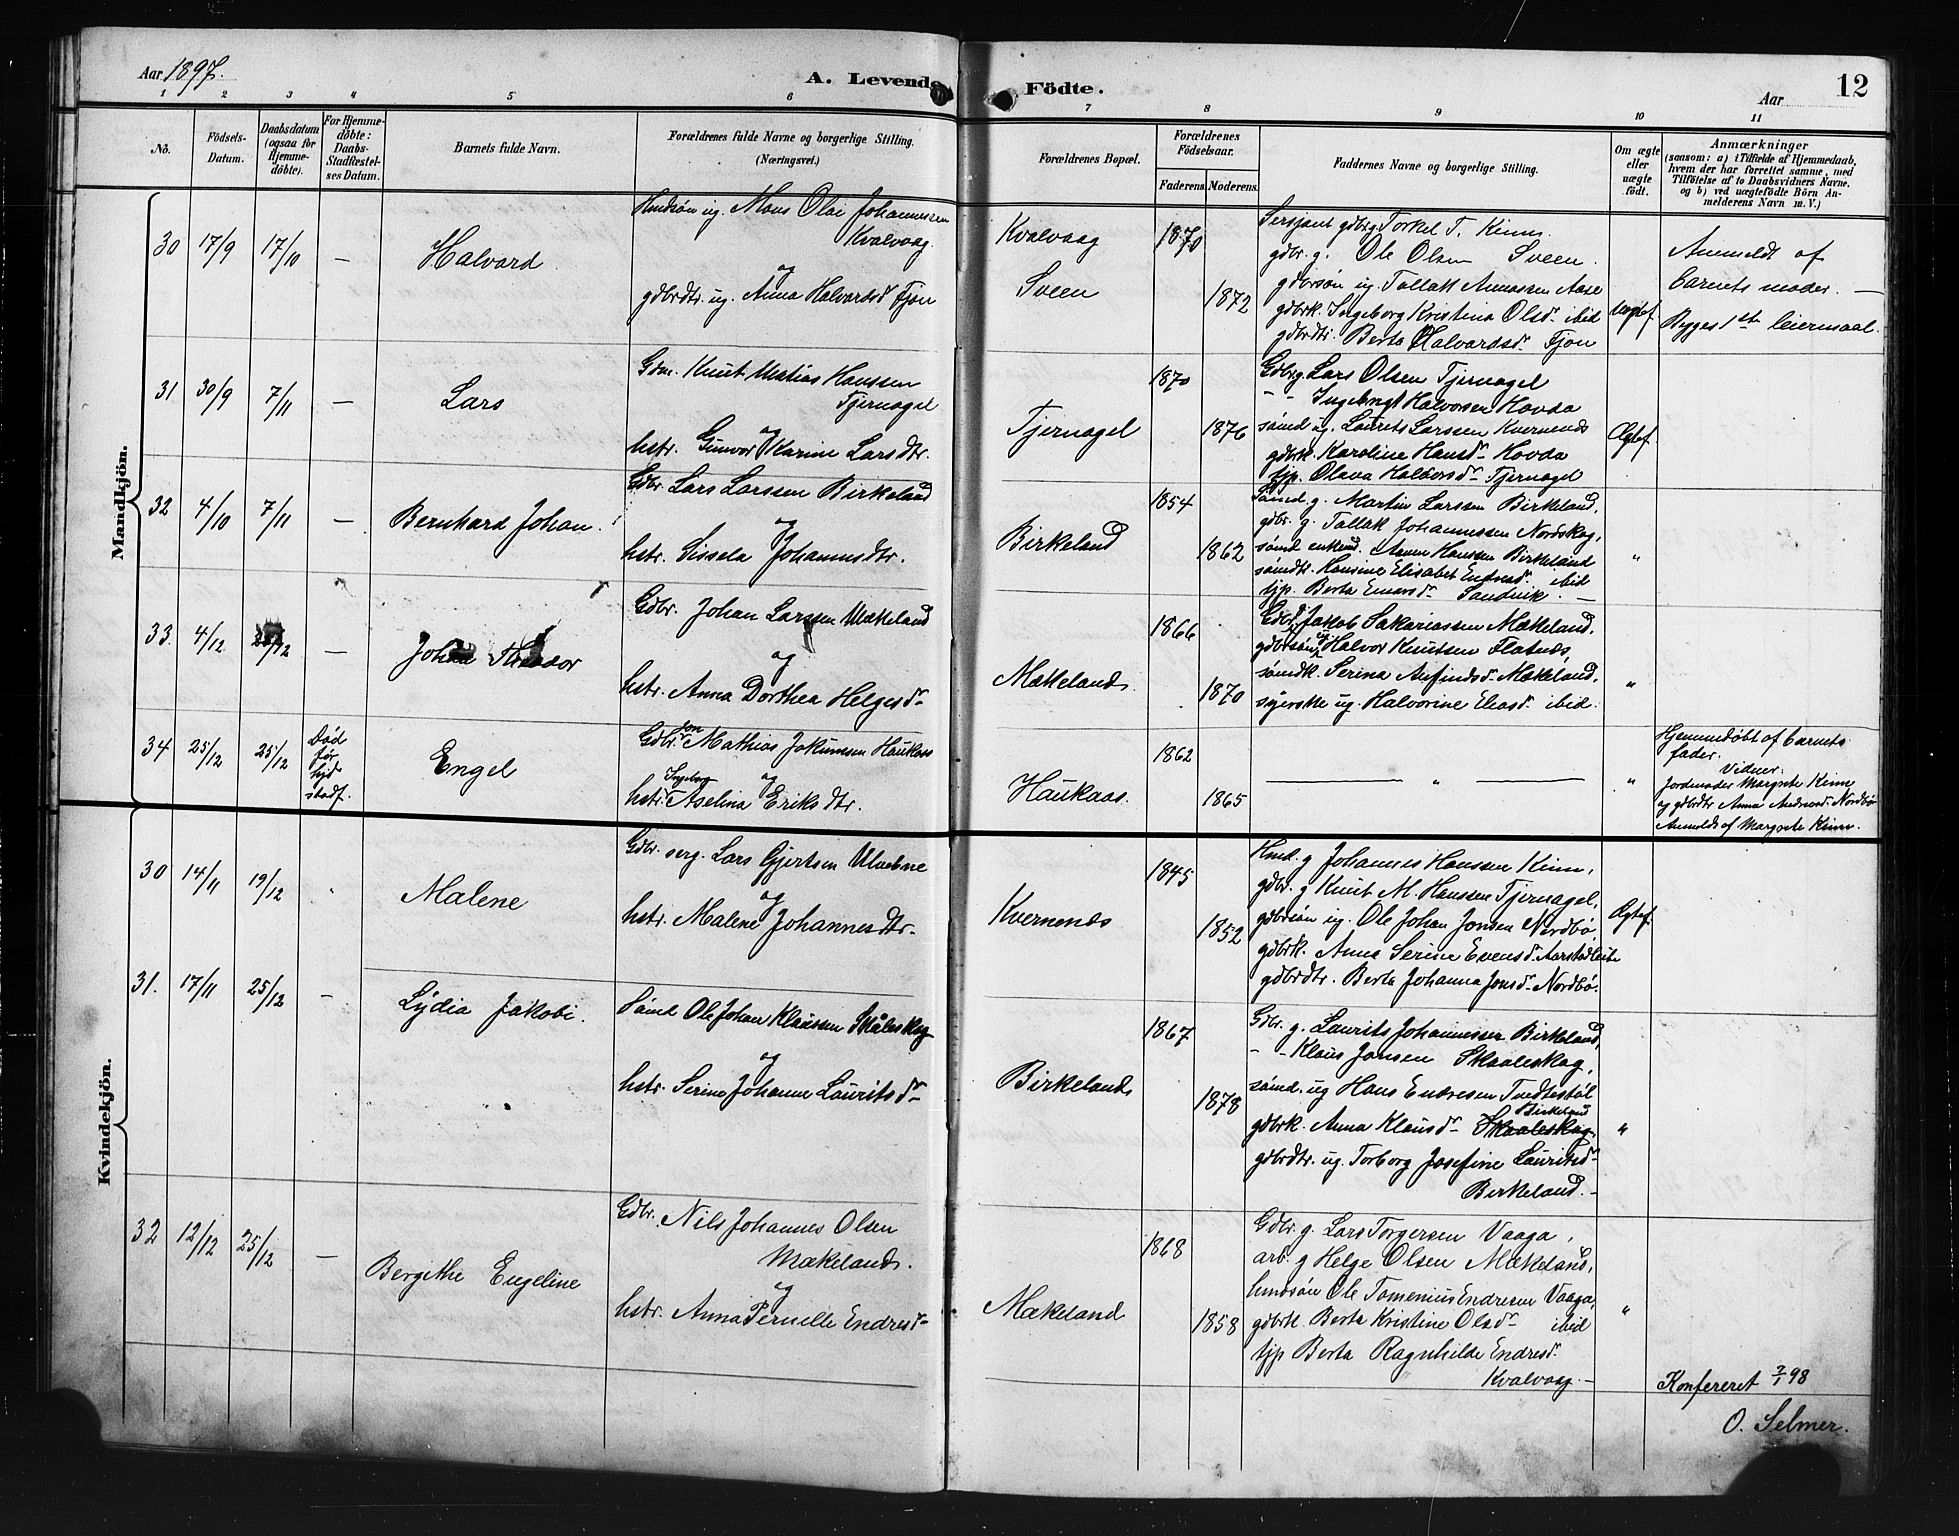 Aar 1897.
A. Levende Födte.
Aar
12
1 2 3 4 5 6 7 8 9 10 11
No.
Födsels-Datum.
Daabsdatum (ogsaa for Hjemmedöbte).
For Hjemmedöbte: Daabs-Stadfæstelses Datum.
Barnets fulde Navn.
Forældrenes fulde Navne og borgerlige Stilling. (Næringsvei.)
Forældrenes Bopæl.
Forældrenes Födselsaar.
Faderens. Moderens.
Faddernes Navne og borgerlige Stilling.
Om ægte eller uægte födt.
Anmærkninger
(saasom: a) i Tilfælde af Hjemmedaab, hvem der har forrettet samme, med Tilföielse af to Daabsvidners Navne, og b) ved uægtefödte Börn Anmelderens Navn m. V.)
Mandkjön.
30 17/9 17/10 —
Halvard
Husmsön ug. Mons Olai Johannessen
Kvalvaag.
og
gdbrdtr. ug. Anna Halvardsd Fjon
Kvalvaag
Sveen
1870
1872
Sersjant gdbrg Torkel T. Kinn.
gdbr. g. Ole Olsen Sveen.
gdbrsön ug. Tallak Aase
gdbrk. Ingeborg Kristina Olsd. ibid
gdbrdtr. Berta Halvardsd. Fjon
Uægtef.
Anmeldt af
barnets moder. —
Begges 1st leiermaal.
31 30/9 7/11 —
Lars
Gdm. Knut Matias Hanssen
Tjernagel
og
hstr. Gunvor Karine Larsdtr.
Tjernagel
1870
1876
Gdbr.g. Lars Olsen Tjernagel
- - Ingebrigt Halvorsen Hovda
sömd ug. Laurits Larssen Kvernenes
gdbrk. Karoline Hansd. Hovda
tjp. Olava Halvorsd. Tjernagel
Ægtef.
32 4/10 7/11 —
Bernhard Johan.
Gdbr. Lars Larssen Birkeland
og
hstr. Sissela Johannesdtr.
Birkeland
1854
1862
Sömd. g. Martin Larssen Birkeland,
gdbr. g. Tallak Johannessen Nordskog,
sömd enkem. Hanssen Birkeland
sömdtr. Hansine Elisabet Endresd. ibid
tjp. Berta Sandvik. —
"
33. 4/12 /12 —
Johan
Gdbr. Johan Larssen Mækeland
og
hstr. Anna Dorthea Helgesd.
Mækeland.
1866
1870
Gdbr. Jakob Sakariassen Mækeland,
gdbrsön ug Halvor Knutsen Flatnes,
sömdk. Serina Arfindsd. Mækeland,
syerske ug. Halvorine Eliasd. ibid.
"
34 25/12 25/12
Död
för
hjd
stadf.
Engel
Gdbr.son Mathias Jokumsen Haukaas
og
hstr. Ingeborg Aselina Eriksdtr.
Haukaas.
1862
1865
" "
Hjemmedöbt af barnets
fader.
Vidner.
Jordmoder Margrete Kinn
og gdbrdtr Anna Nordbö
Anmeldt af Margrete Kinn.
Kvindekjön.
30 14/11 19/12 "
Malene
Gdbr. serg. Lars Gjertsen
og
hstr. Malene Johannesdtr.
Kvernenes
1845
1852
Hmd. g Johannes Hanssen Kinn,
gdbr. g Knut M. Hanssen Tjernagel,
gdbrsön ug. Ole Johan Jonsen Nordbö,
gdbrk. Anna Serine Evensd. Aarstadleite
gdbrdtr. Berta Johanna Jonsd. Nordbö.
Ægtef.
31. 17/11 25/12 —
Lydia Jakobi.
Sömd Ole Johan Klaussen Skåleskog
og
hstr. Serine Johanne Lauritsd.
Birkeland
1867
1878
Gdbr. g. Laurits Johannessen Birkeland,
- - Klaus Jansen Skaaleskog,
sömd. ug Hans Endresen Tvedtestöl
Birkeland
gdbrk. Anna Klausd. Skaaleskog.
gdbrdtr. ug. Torborg Josefine Lauritsd.
Birkeland. —
"
32 12/12 25/12 —
Bergithe Engeline
Gdbr. Nils Johannes Olsen
Mækeland.
og
hstr. Anna Pernelle Endresd.
Mækeland
1868
1858
Gdbr. g. Lars Torgersen Vaaga,
arb. g Helge Olsen Mækeland,
hmdsön Ole Tomenius Endresen Vaaga,
gdbrk. Berta Kristine Olsd. ibid
tjp Berta Ragnhilde Endresd.
Kvalvaag. —
"
Konfereret 7/1 98
O. Selmer.